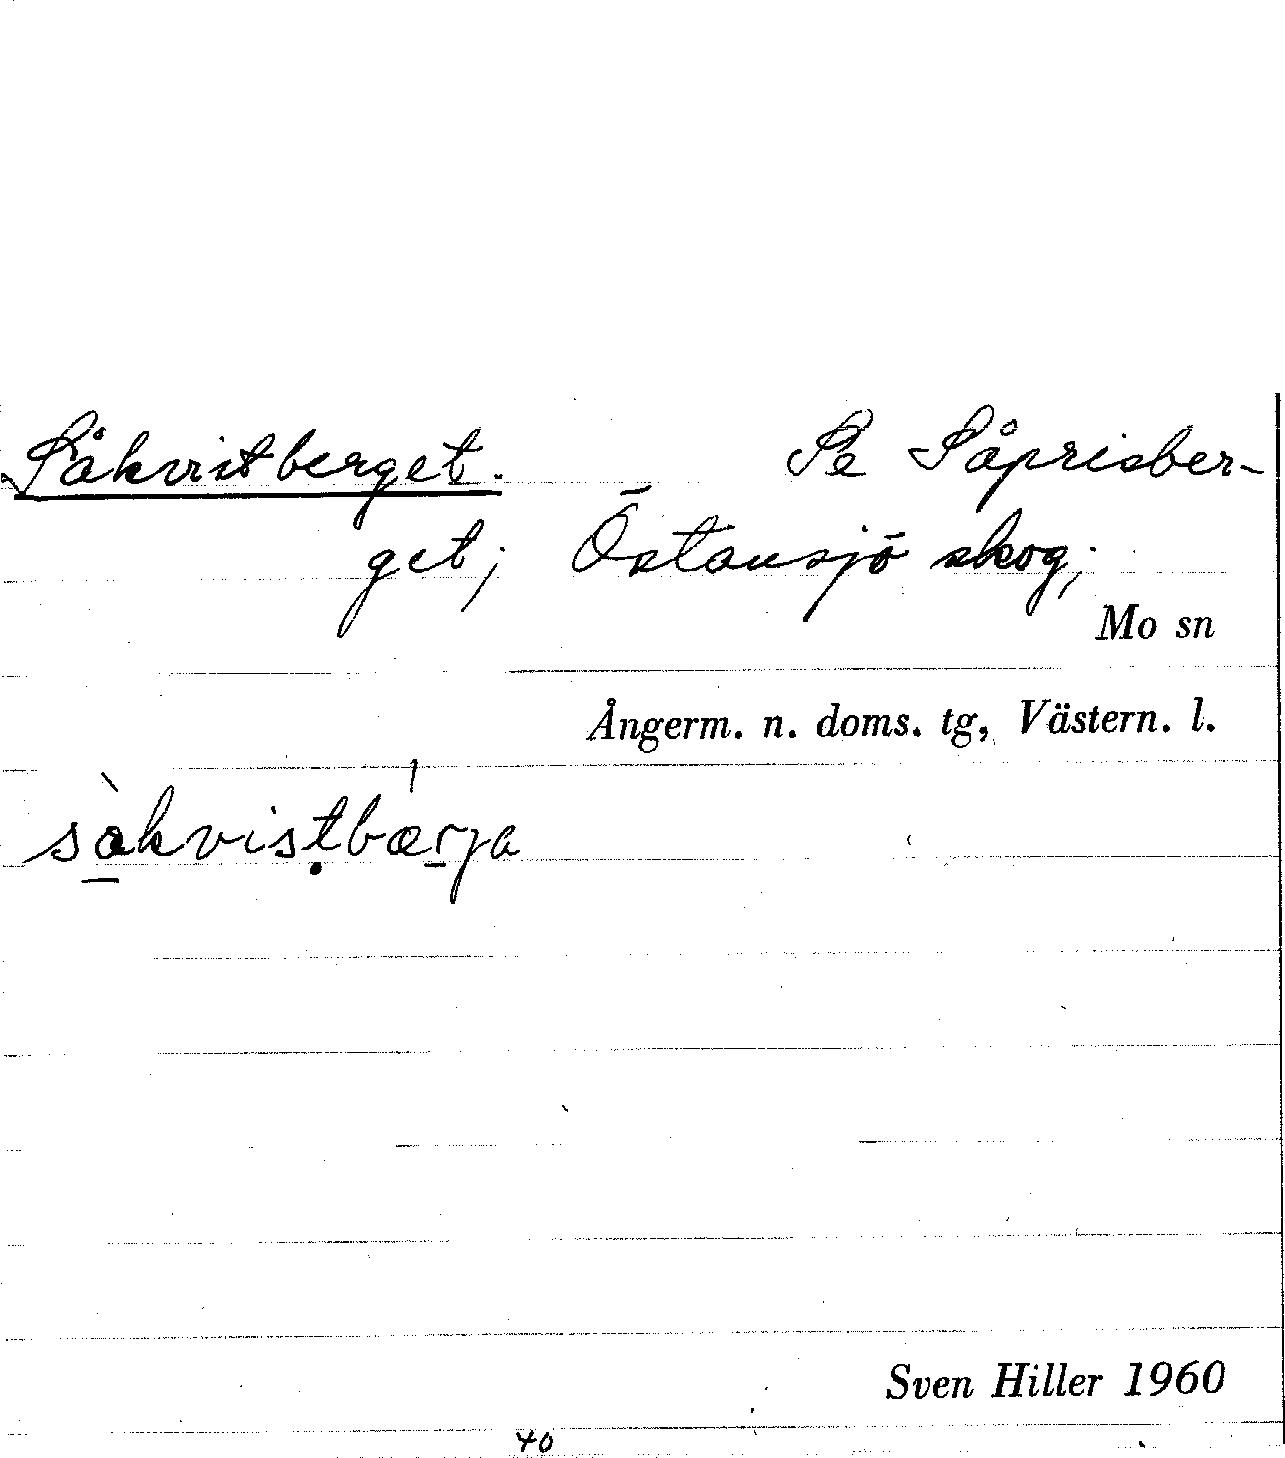 Såkvistberget. Se Såprisber-
get; Östansjö skog;
Mo sn
Ångerm. n. doms. tg, Västern. l.
sà̱kvisṭbæ̍r̠ja
Sven Hiller 1960
40